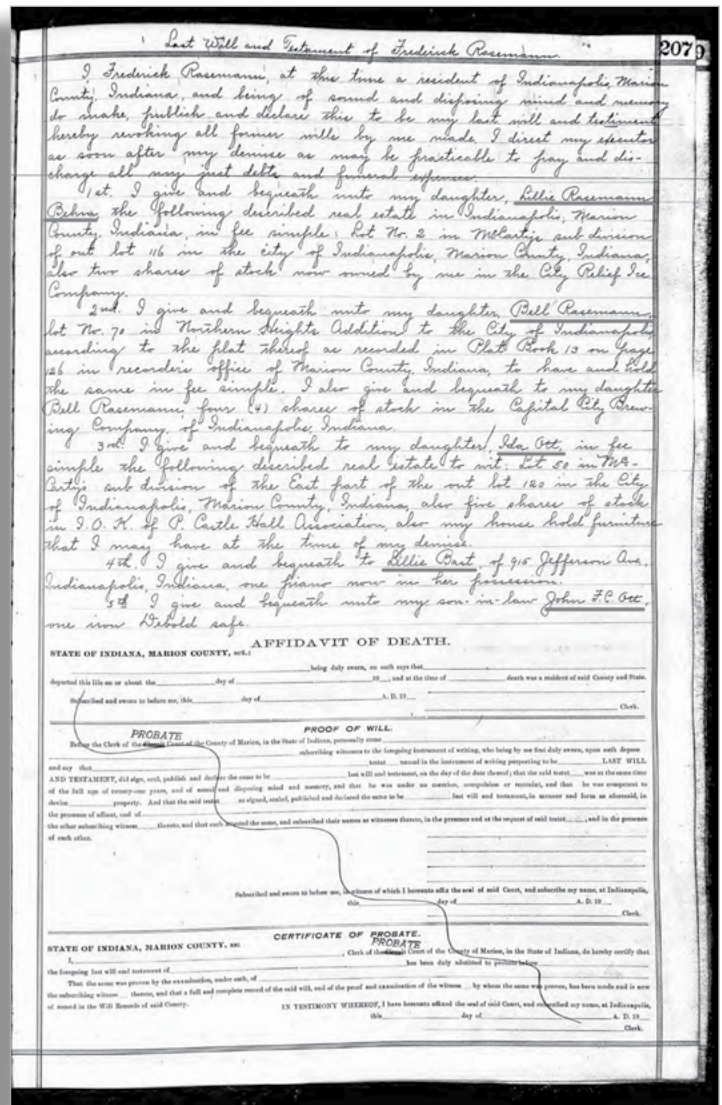 Last Will and Testament of Frederick Rasemann.
207
I, Frederick Rasemann, at this time a resident of Indianapolis, Marion
County, Indiana, and being of sound and disposing mind and memory
do make, publish and declare this to be my last will and testiment
hereby revoking all former wills by me made, I direct my executor
as soon after my demise as may be practicable to pay and dis-
charge all my just debts and funeral expenses.
1st. I give and bequeath unto my daughter, Lillie Rasemann
the following described real estate in Indianapolis, Marion
County, Indiana, in fee simple: Lot No. 2 in McCarty's sub division
of out lot 116 in the city of Indianapolis, Marion County, Indiana,
also two shares of stock now owned by me in the City Relief Ice
Company.
2nd. I give and bequeath unto my daughter, Bell Rasemann,
lot No. 70 in Northern Heights Addition to the City of Indianapolis
according to the plat thereof as recorded in Plat Book 13 on page
126 in recorder's office of Marion County, Indiana, to have and hold
the same in fee simple. I also give and bequeath to my daughter
Bell Rasemann, four (4) shares of stock in the Capital City Brew-
ing Company, of Indianapolis, Indiana.
3rd. I give and bequeath to my daughter, Ida Ott, in fee
simple the following described real estate to wit: Lot 50 in Mc-
Carty's sub division of the East part of the out lot 120 in the City
of Indianapolis, Marion County, Indiana, also five shares of stock
in of P. Castle Hall Association, also my house hold furniture
that I may have at the time of my demise.
4th I give and bequeath to Lillie Bast, of 915 Jefferson Ave,
Indianapolis, Indiana, one piano now in her possession.
5th I give and bequeath unto my son-in-law John F.C. Ott,
one iron Debold safe.
AFFIDAVIT OF DEATH.
STATE OF INDIANA, MARION COUNTY, sct.:
being duly sworn, on oath says that
departed this life on or about the day of 19 , and at the time of death was a resident of said County and State.
Subscribed and sworn to before me, this day of A. D. 19
Clerk.
PROOF OF WILL.
PROBATE
Before the Clerk of the Circuit Court of the County of Marion, in the State of Indiana, personally came
subscribing witnesses to the foregoing instrument of writing, who being by me first duly sworn, upon oath depose
and say that testat named in the instrument of writing purporting to be LAST WILL
AND TESTAMENT, did sign, seal, publish and declare the same to be last will and testament, on the day of the date thereof; that the said testat was at the same time
of the full age of twenty-one years, and of sound and disposing mind and memory, and that he was under no coercion, compulsion or restraint, and that he was competent to
devise property. And that the said testat so signed, sealed, published and declared the same to be last will and testament, in manner and form as aforesaid, in
the presence of affiant, and of
the other subscribing witness thereto, and that each attested the same, and subscribed their names as witnesses thereto, in the presence and at the request of said testat , and in the presence
of each other.
Subscribed and sworn to before me, in witness of which I hereunto affix the seal of said Court, and subscribe my name, at Indianapolis,
this day of A. D. 19
Clerk.
CERTIFICATE OF PROBATE.
STATE OF INDIANA, MARION COUNTY, ss:
PROBATE
I, , Clerk of the Circuit Court of the County of Marion, in the State of Indiana, do hereby certify that
the foregoing last will and testament of has been duly admitted to probate before
That the same was proven by the examination, under oath, of
the subscribing witness thereto, and that a full and complete record of the said will, and of the proof and examination of the witness by whom the same was proven, has been made and is now
of record in the Will Records of said County.
IN TESTIMONY WHEREOF, I have hereunto affixed the seal of said Court, and subscribed my name, at Indianapolis,
this day of A. D. 19
Clerk.